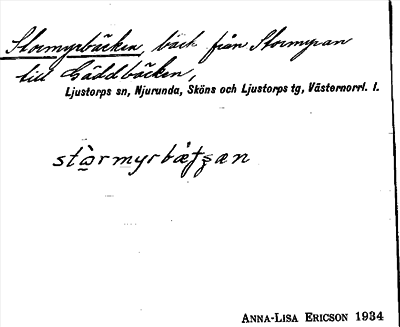 Stormyrbäcken, bäck från Stormyran
till Gäddbäcken,
Ljustorps sn, Njurunda, Sköns och Ljustorps tg, Västernorrl. l.
stòrmyrbæƫʂæn
ANNA-LISA ERICSON 1934